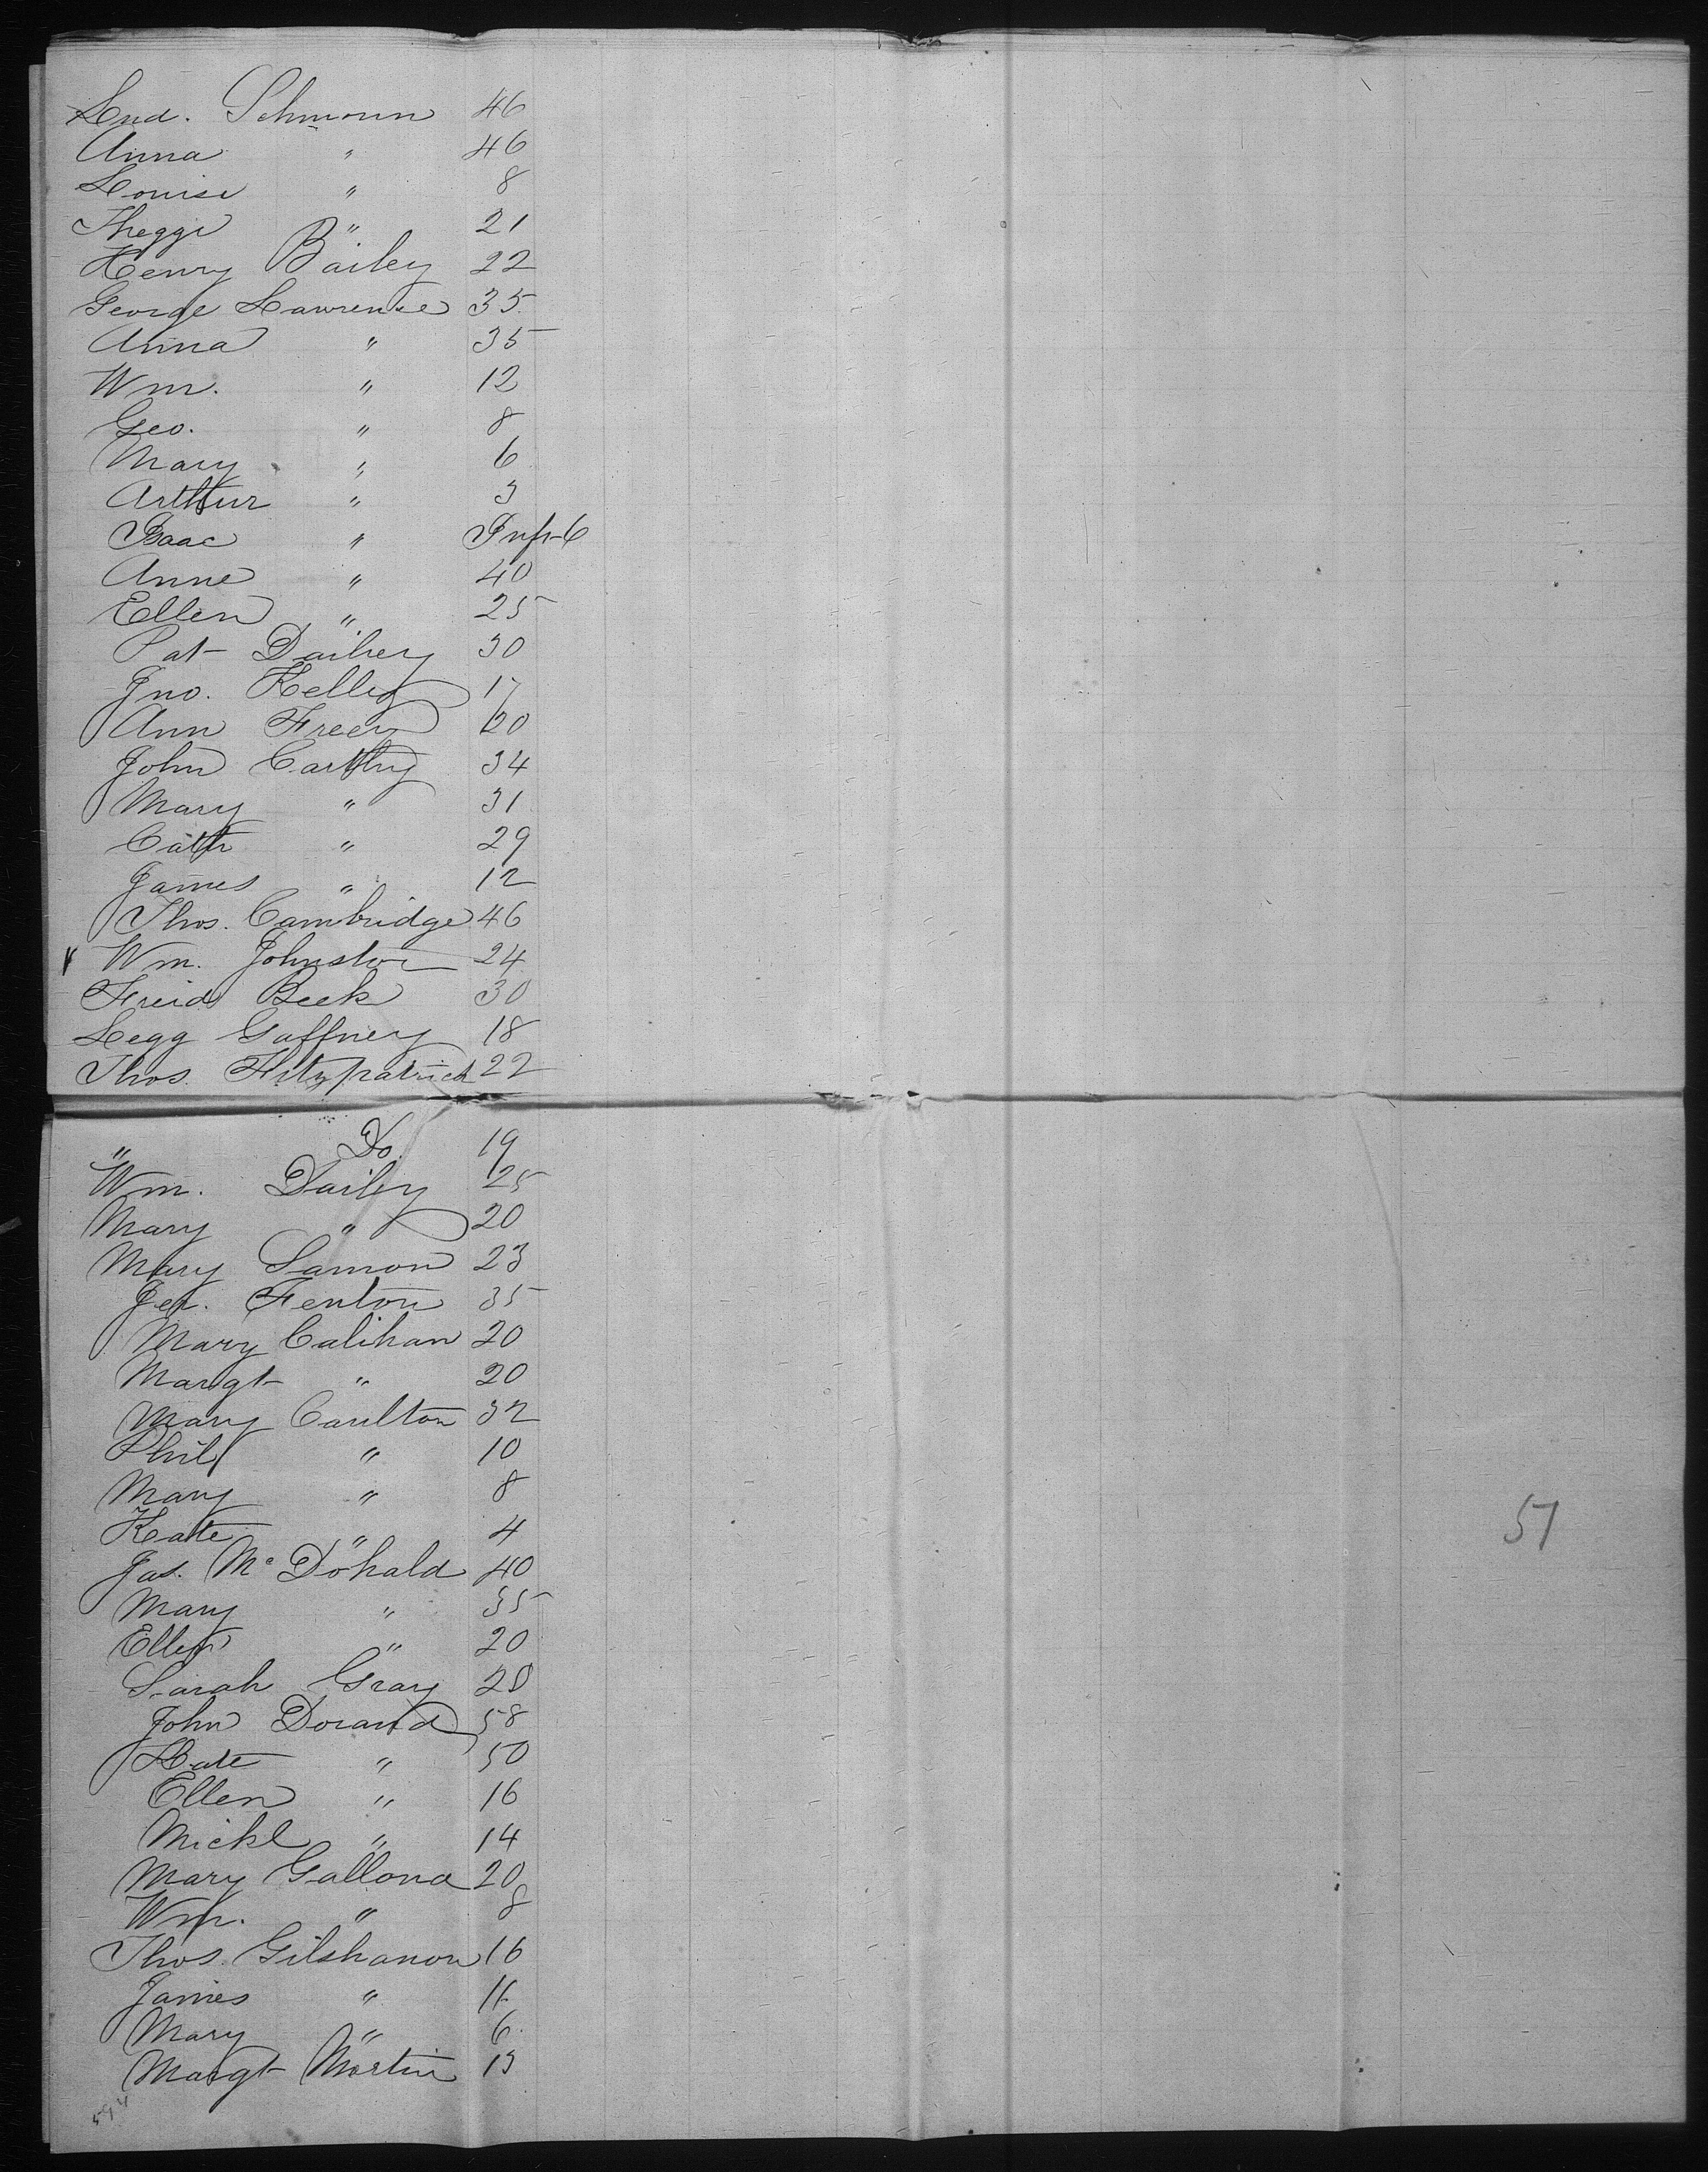 Lud. Schmonn 46
Anna " 46
Louise " 8
Theggi " 21
Henry Bailey 22
George Lawrence 35
Anna " 35
Wm. " 12
Geo. " 8
Mary " 6
Arthur " 3
Isaac " Inft-6
Anne " 40
Ellen " 25
Pat Dailey 30
Jno. Kelly 17
Ann Freey 20
John Carthy 34
Mary " 31
Cath " 29
James " 12
Thos. Cambridge 46
Wm. Johnston 24
Freid Beek 30
Legg Gaffney 18
Thos. Fitzpatrick 22
" Do. 19
Wm. Dailey 25
Mary " 20
Mary Samon 23
Jer. Fenton 35
Mary Calihan 20
Margt " 20
Mary Carlton 32
Phil " 10
Mary " 8
Kate " 4
Jas. McDonald 40
Mary " 35
Ellen " 20
Sarah Gray 20
John Dorand 58
Kate " 50
Ellen " 16
Mickl " 14
Mary Gallona 20
Wm. " 8
Thos. Gilshanon 16
James " 11
Mary " 6
Margt Martin 13
51
594